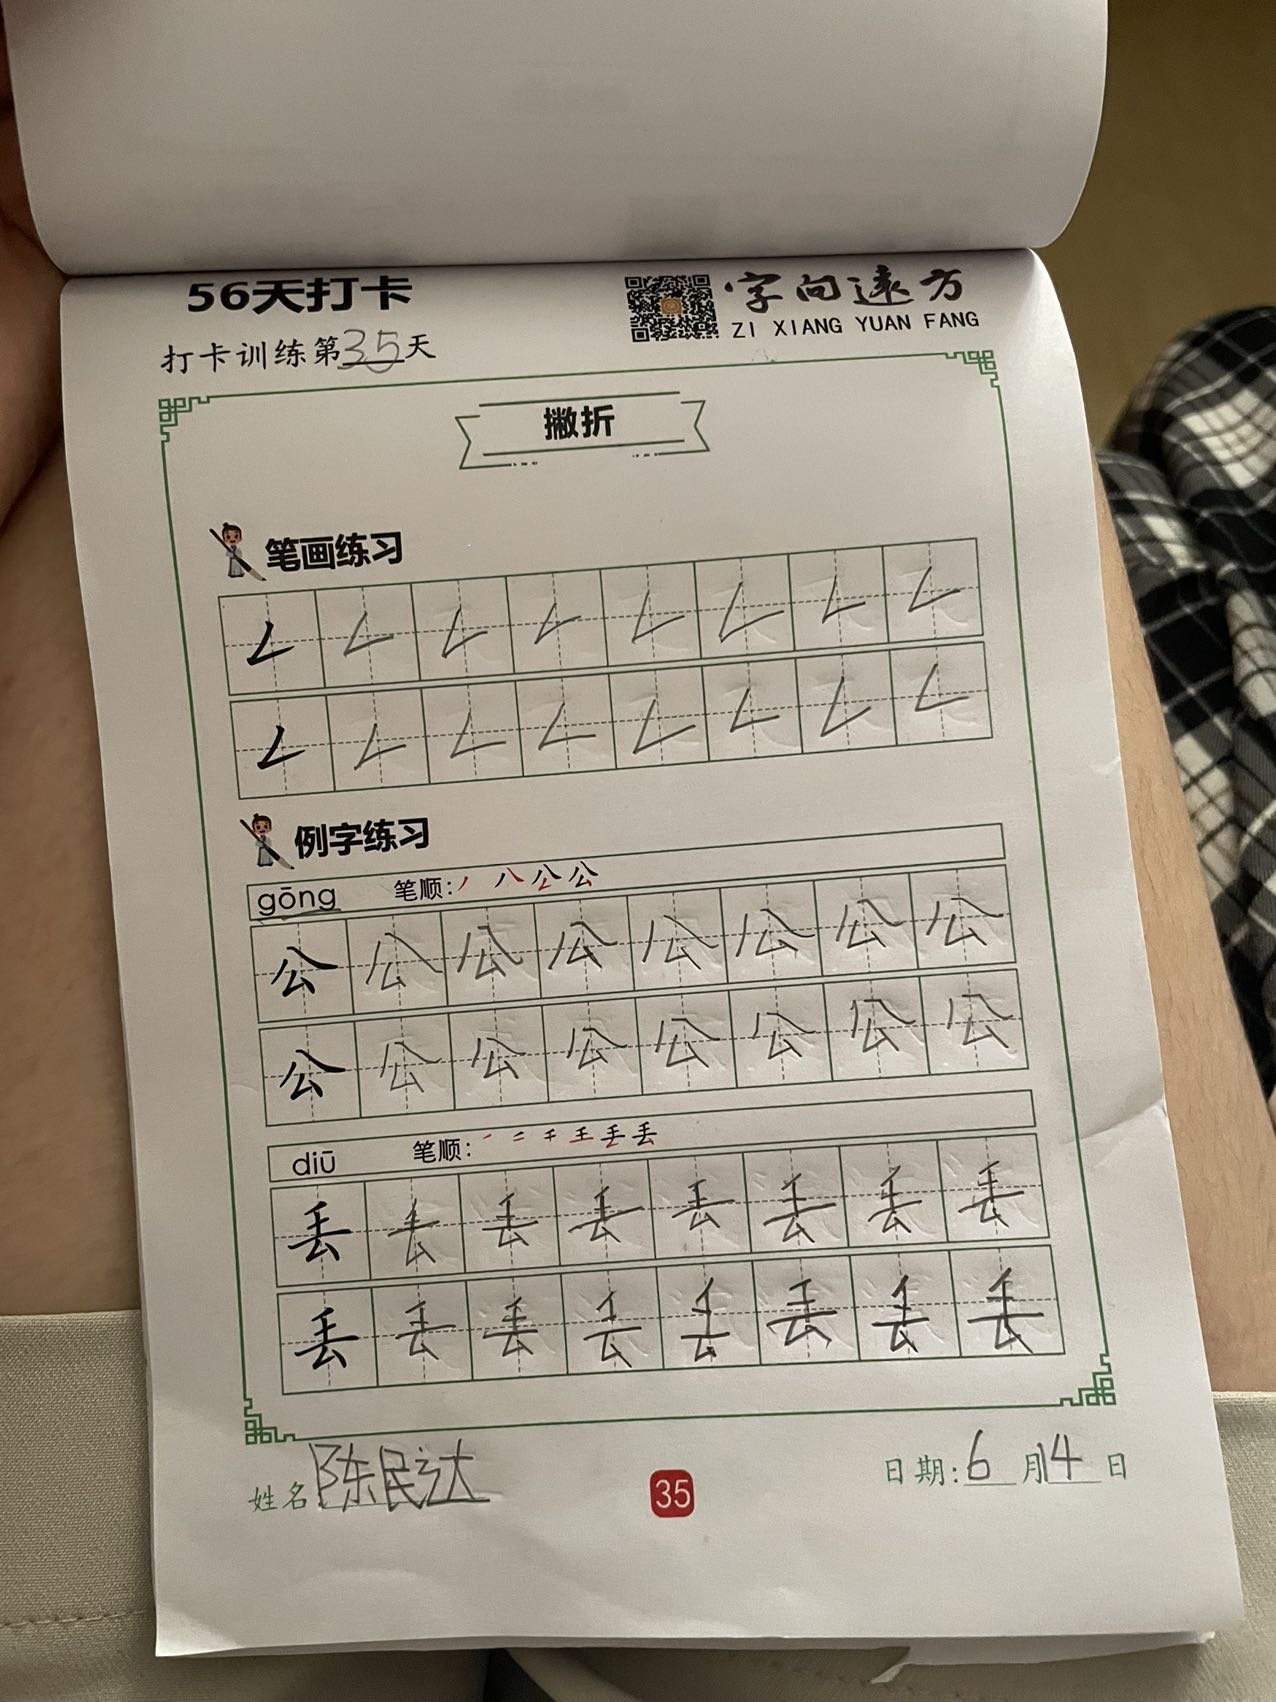 56天打卡
字向远方
ZI XIANG YUAN FANG
打卡训练第35天
撇折
笔画练习
𠃋 𠃋 𠃋 𠃋 𠃋 𠃋 𠃋 𠃋
𠃋 𠃋 𠃋 𠃋 𠃋 𠃋 𠃋 𠃋
例字练习
gōng 笔顺: 丿 八 公 公
公 公 公 公 公 公 公 公
公 公 公 公 公 公 公 公
diū 笔顺: 一 二 千 王 丢 丢
丢 丢 丢 丢 丢 丢 丢 丢
丢 丢 丢 丢 丢 丢 丢 丢
姓名 陈民达
35
日期: 6 月 14 日